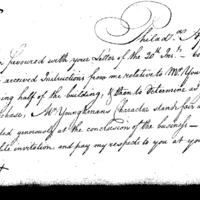 Philad.a Ap
favoured with your Letter of the 20th Ins.t
received Instructions from me relative to Mr. You
ing half of the building, & then to determine as
chase, Mr Youngkmans Character stands fair a
ted generously at the conclusion of the business —
lite invitation, and pay my respects to you at yo